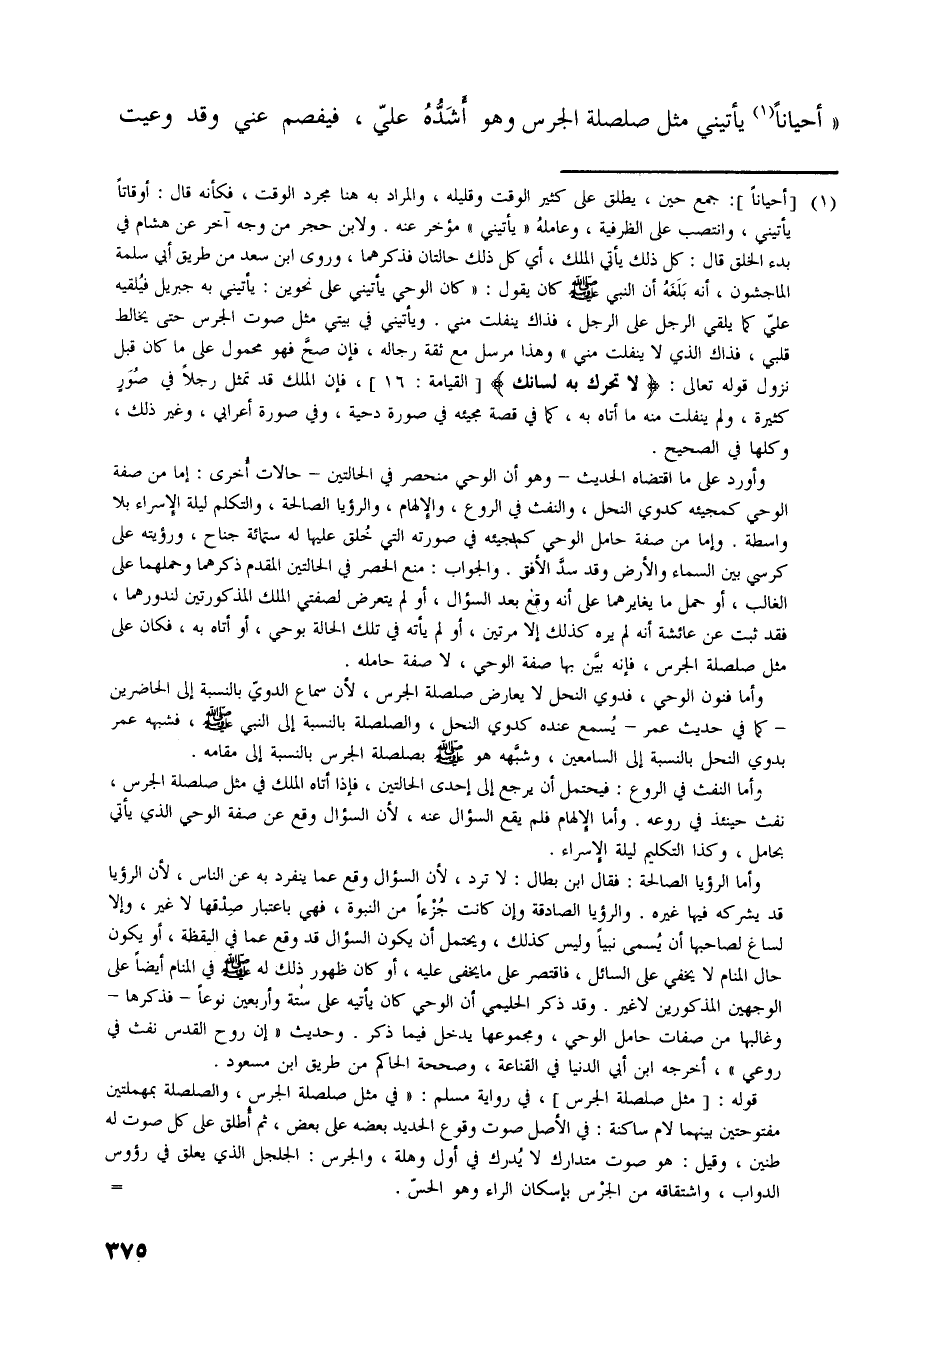 « أحياناً(١) يأتيني مثل صلصلة الجرس وهو أَشَدُّهُ عليّ ، فيفصم عني وقد وعيت
(١) [ أحياناً ]: جمع حين ، يطلق على كثير الوقت وقليله ، والمراد به هنا مجرد الوقت ، فكأنه قال : أوقاتاً
يأتيني ، وانتصب على الظرفية ، وعاملهُ « يأتيني » مؤخر عنه . ولابن حجر من وجه آخر عن هشام في
بدء الخلق قال : كل ذلك يأتي الملك ، أي كل ذلك حالتان فذكرهما ، وروى ابن سعد من طريق أبي سلمة
الماجشون ، أنه بَلَغَهُ أن النبي ﷺ كان يقول : « كان الوحي يأتيني على نحوين : يأتيني به جبريل فيُلقيه
عليّ كما يلقي الرجل على الرجل ، فذاك ينفلت مني . ويأتيني في بيتي مثل صوت الجرس حتى يخالط
قلبي ، فذاك الذي لا ينفلت مني » وهذا مرسل مع ثقة رجاله ، فإن صحَّ فهو محمول على ما كان قبل
نزول قوله تعالى : ﴿ لا تحرك به لسانك ﴾ [ القيامة : ١٦ ] ، فإن الملك قد تمثل رجلاً في صُوَرٍ
كثيرة ، ولم ينفلت منه ما أتاه به ، كما في قصة مجيئه في صورة دحية ، وفي صورة أعرابي ، وغير ذلك ،
وكلها في الصحيح .
وأورد على ما اقتضاه الحديث – وهو أن الوحي منحصر في الحالتين – حالات أُخرى : إما من صفة
الوحي كمجيئه كدوي النحل ، والنفث في الروع ، والإلهام ، والرؤيا الصالحة ، والتكلم ليلة الإسراء بلا
واسطة . وإما من صفة حامل الوحي كمجيئه في صورته التي خُلق عليها له ستمائة جناح ، ورؤيته على
كرسي بين السماء والأرض وقد سدَّ الأفق . والجواب : منع الحصر في الحالتين المقدم ذكرهما وحملهما على
الغالب ، أو حمل ما يغايرهما على أنه وقع بعد السؤال ، أو لم يتعرض لصفتي الملك المذكورتين لندورهما ،
فقد ثبت عن عائشة أنه لم يره كذلك إلا مرتين ، أو لم يأته في تلك الحالة بوحي ، أو أتاه به ، فكان على
مثل صلصلة الجرس ، فإنه بيَّن بها صفة الوحي ، لا صفة حامله .
وأما فنون الوحي ، فدوي النحل لا يعارض صلصلة الجرس ، لأن سماع الدويّ بالنسبة إلى الحاضرين
– كما في حديث عمر – يُسمع عنده كدوي النحل ، والصلصلة بالنسبة إلى النبي ﷺ ، فشبهه عمر
بدوي النحل بالنسبة إلى السامعين ، وشبَّهه هو ﷺ بصلصلة الجرس بالنسبة إلى مقامه .
وأما النفث في الروع : فيحتمل أن يرجع إلى إحدى الحالتين ، فإذا أتاه الملك في مثل صلصلة الجرس ،
نفث حينئذ في روعه . وأما الإلهام فلم يقع السؤال عنه ، لأن السؤال وقع عن صفة الوحي الذي يأتي
بحامل ، وكذا التكليم ليلة الإسراء .
وأما الرؤيا الصالحة : فقال ابن بطال : لا ترد ، لأن السؤال وقع عما ينفرد به عن الناس ، لأن الرؤيا
قد يشركه فيها غيره . والرؤيا الصادقة وإن كانت جُزْءاً من النبوة ، فهي باعتبار صِدْقها لا غير ، وإلا
لساغ لصاحبها أن يُسمى نبياً وليس كذلك ، ويحتمل أن يكون السؤال قد وقع عما في اليقظة ، أو يكون
حال المنام لا يخفي على السائل ، فاقتصر على مايخفى عليه ، أو كان ظهور ذلك له ﷺ في المنام أيضاً على
الوجهين المذكورين لاغير . وقد ذكر الحليمي أن الوحي كان يأتيه على ستة وأربعين نوعاً – فذكرها –
وغالبها من صفات حامل الوحي ، ومجموعها يدخل فيما ذكر . وحديث « إن روح القدس نفث في
روعي » ، أخرجه ابن أبي الدنيا في القناعة ، وصححة الحاكم من طريق ابن مسعود .
قوله : [ مثل صلصلة الجرس ] ، في رواية مسلم : « في مثل صلصلة الجرس ، والصلصلة بمهملتين
مفتوحتين بينهما لام ساكنة : في الأصل صوت وقوع الحديد بعضه على بعض ، ثم أُطلق على كل صوت له
طنين ، وقيل : هو صوت متدارك لا يُدرك في أول وهلة ، والجرس : الجلجل الذي يعلق في رؤوس
الدواب ، واشتقاقه من الجرْس بإسكان الراء وهو الحسّ . =
٣٧٥